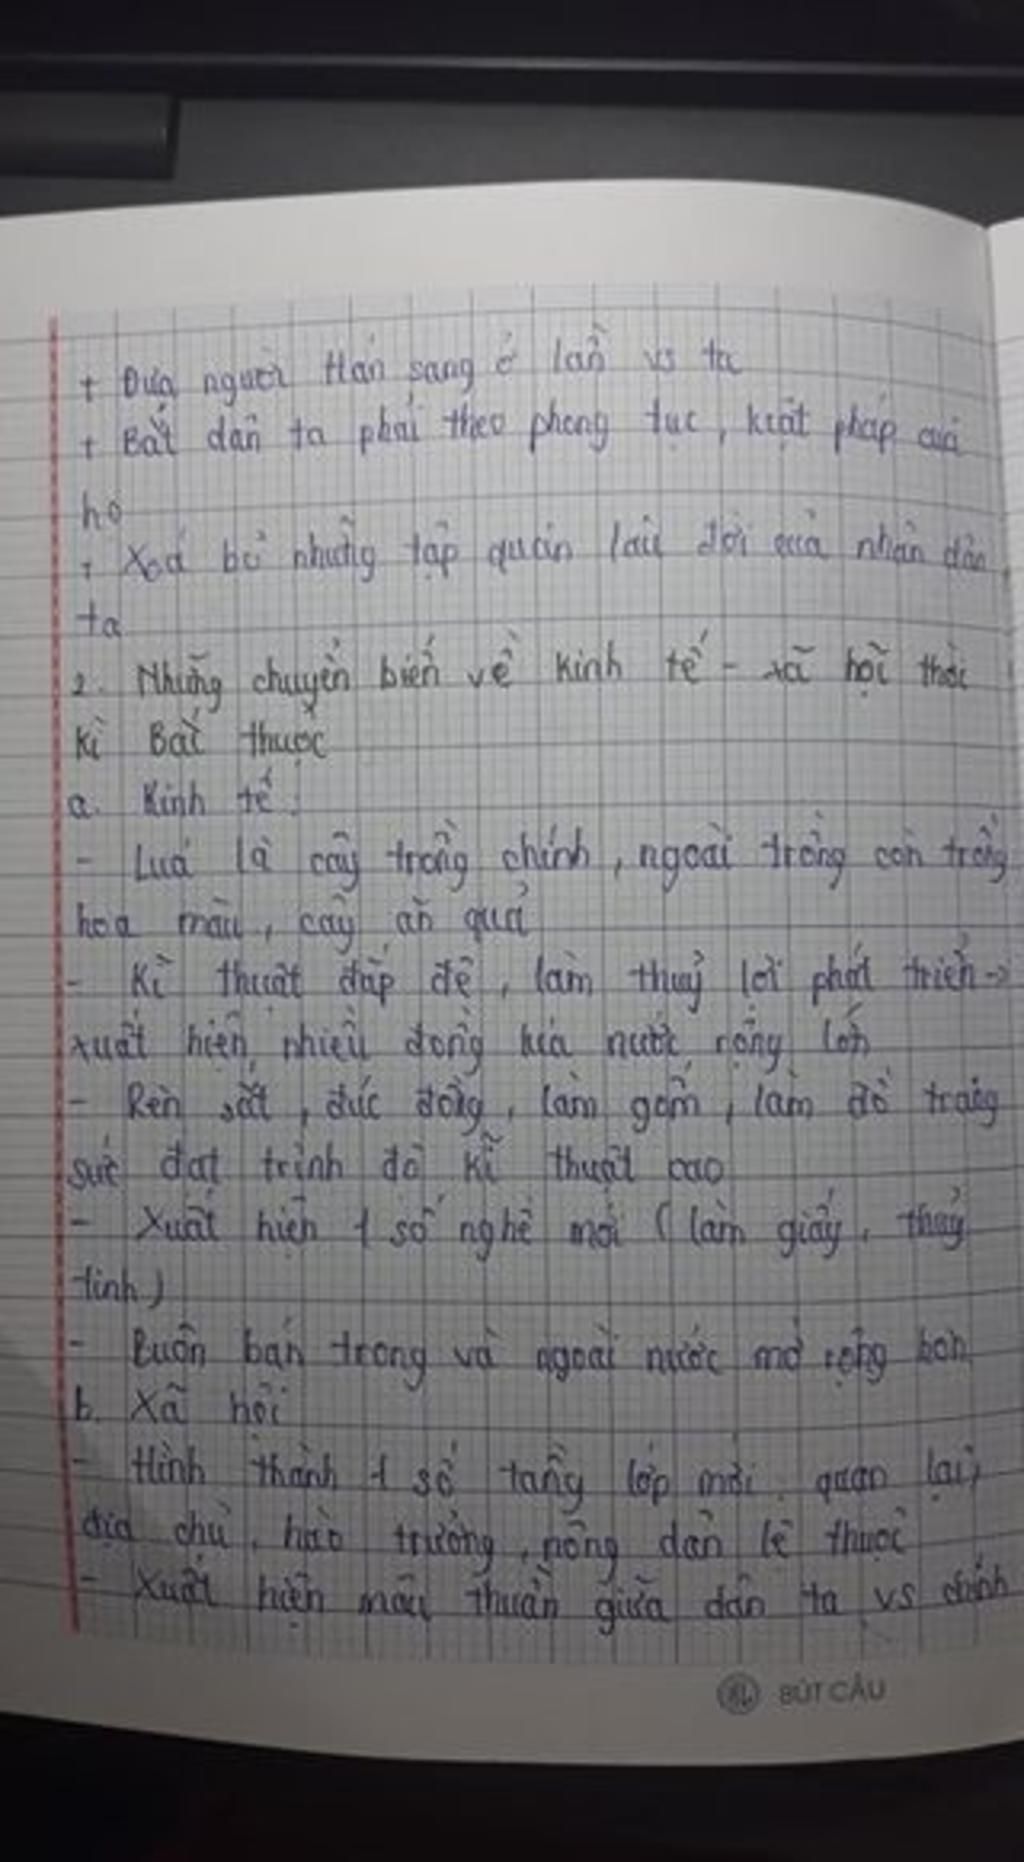 + Đưa người Hán sang ở lẫn vs ta
+ Bắt dân ta phải theo phong tục, luật pháp của
họ
+ Xoá bỏ những tập quán lâu đời của nhân dân
ta
2. Những chuyển biến về kinh tế - xã hội thời
kì Bắc thuộc
a. Kinh tế:
- Luá là cây trồng chính, ngoài trồng còn trồng
hoa màu, cây ăn quả
- Kĩ thuật đắp đê, làm thuỷ lợi phát triển ->
xuất hiện nhiều đồng lúa nước rộng lớn
- Rèn sắt, đúc đồng, làm gốm, làm đồ trang
sức đạt trình độ kĩ thuật cao
- Xuất hiện 1 số nghề mới (làm giấy, thủy
tinh)
- Buôn bán trong và ngoài nước mở rộng hơn
b. Xã hội
- Hình thành 1 số tầng lớp mới: quan lại,
địa chủ, hào trưởng, nông dân lệ thuộc
- Xuất hiện mâu thuẫn giữa dân ta vs chính
BÚT CÂU